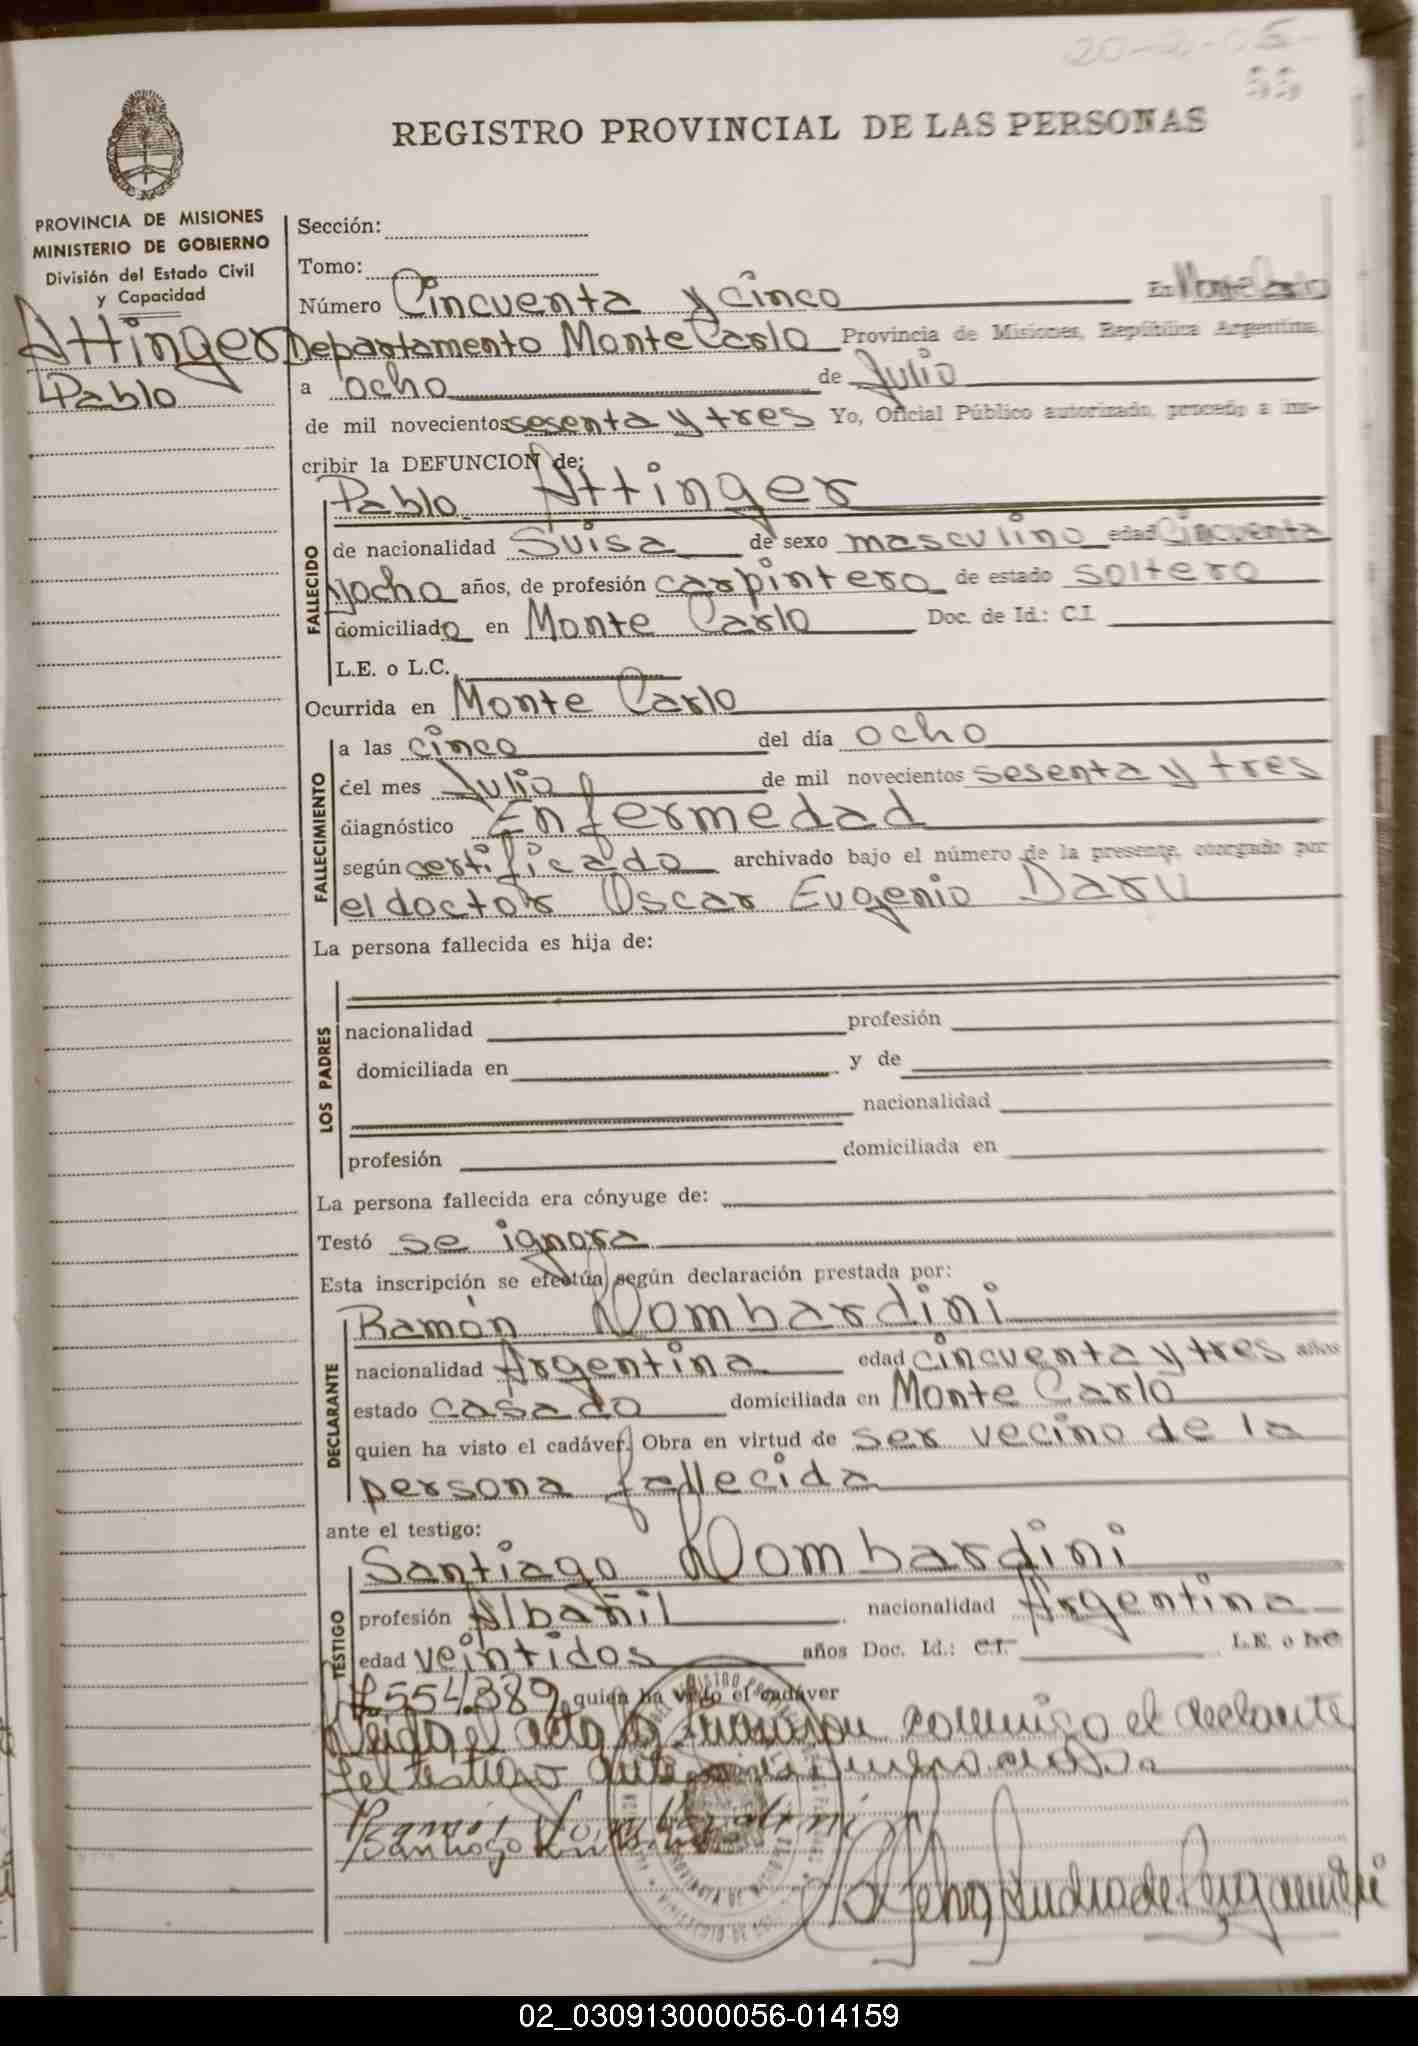 55
REGISTRO PROVINCIAL DE LAS PERSONAS
PROVINCIA DE MISIONES
MINISTERIO DE GOBIERNO
División del Estado Civil
y Capacidad
Attinger
Pablo
Sección:
Tomo:
Número Cincuenta y cinco En Monte Carlo
Departamento Monte Carlo Provincia de Misiones, República Argentina,
a ocho de Julio
de mil novecientos sesenta y tres Yo, Oficial Público autorizado, procedo a ins-
cribir la DEFUNCION de:
FALLECIDO
Pablo Attinger
de nacionalidad Suisa de sexo masculino edad Cincuenta
yocho años, de profesión carpintero de estado soltero
domiciliado en Monte Carlo Doc. de Id.: C.I.
L.E. o L.C.
Ocurrida en Monte Carlo
FALLECIMIENTO
a las cinco del día ocho
del mes Julio de mil novecientos sesenta y tres
diagnóstico Enfermedad
según certificado archivado bajo el número de la presente, otorgado por
el doctor Oscar Eugenio Daru
La persona fallecida es hija de:
LOS PADRES
nacionalidad profesión
domiciliada en y de
nacionalidad
profesión domiciliada en
La persona fallecida era cónyuge de:
Testó se ignora
Esta inscripción se efectúa según declaración prestada por:
DECLARANTE
Ramón Lombardini
nacionalidad Argentina edad cincuenta y tres años
estado casado domiciliada en Monte Carlo
quien ha visto el cadáver. Obra en virtud de ser vecino de la
persona fallecida
ante el testigo:
TESTIGO
Santiago Lombardini
profesión Albañil nacionalidad Argentina
edad veintidos años Doc. Id.: C.I. L.E. o L.C.
7554.389 quien ha visto el cadáver
Leida el acta la firmaron conmigo el declarante
y el testigo ante
Ramón Lombardini
Santiago Lombardini
02_030913000056-014159